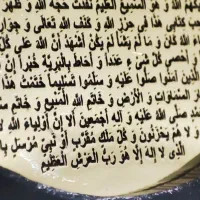 حجة الله و ظهور
في حرز الله و كنف الله تعالى و جوار
الله كان و ما لم يشأ لم يكن أشهد أن الله على كل
أحصى كل شيء عددا و أحاط بالبرية خبرا إن
الذين آمنوا صلوا عليه و سلموا تسليما فختمت هذا
السموات و الأرض و خاتم الله المنيع و خاتم
صلى الله عليه و آله أجمعين ألا إن أولياء الله
و لا هم يحزنون و كل ملك مقرب أو نبي مرسل
الذي لا إله إلا هو رب العرش العظيم